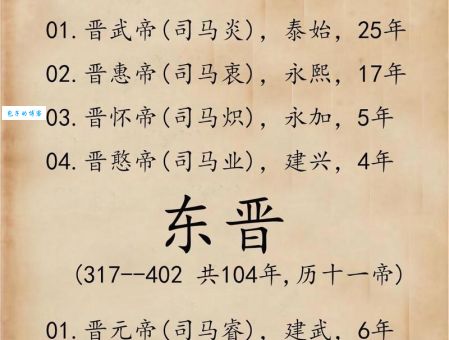 01.晋武帝(司马炎), 泰始, 25年
02.晋惠帝(司马衷), 永熙, 17年
包子的博客
03.晋怀帝(司马炽), 永加, 5年
04.晋憨帝(司马业), 建兴, 4年
东晋
(317--402 共104年,历十一帝)
01.晋元帝(司马睿), 建武, 6年